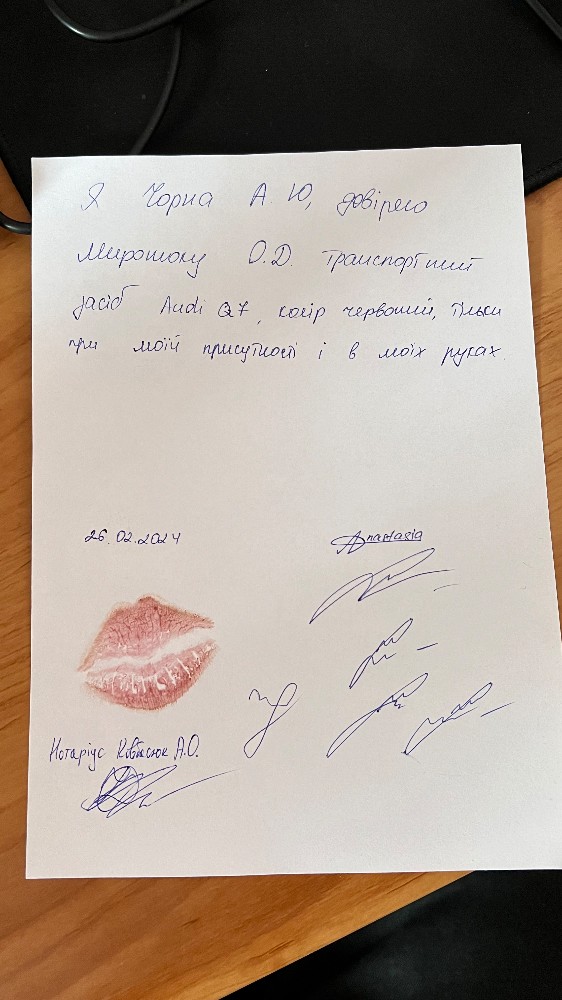 Я Чорна А. Ю, довіряю
Мирошоку О.Д. транспортний
засіб Audi Q7, колір червоний, тільки
при моїй присутності і в моїх руках.
26.02.2024
Anastasia
Нотаріус А.О.